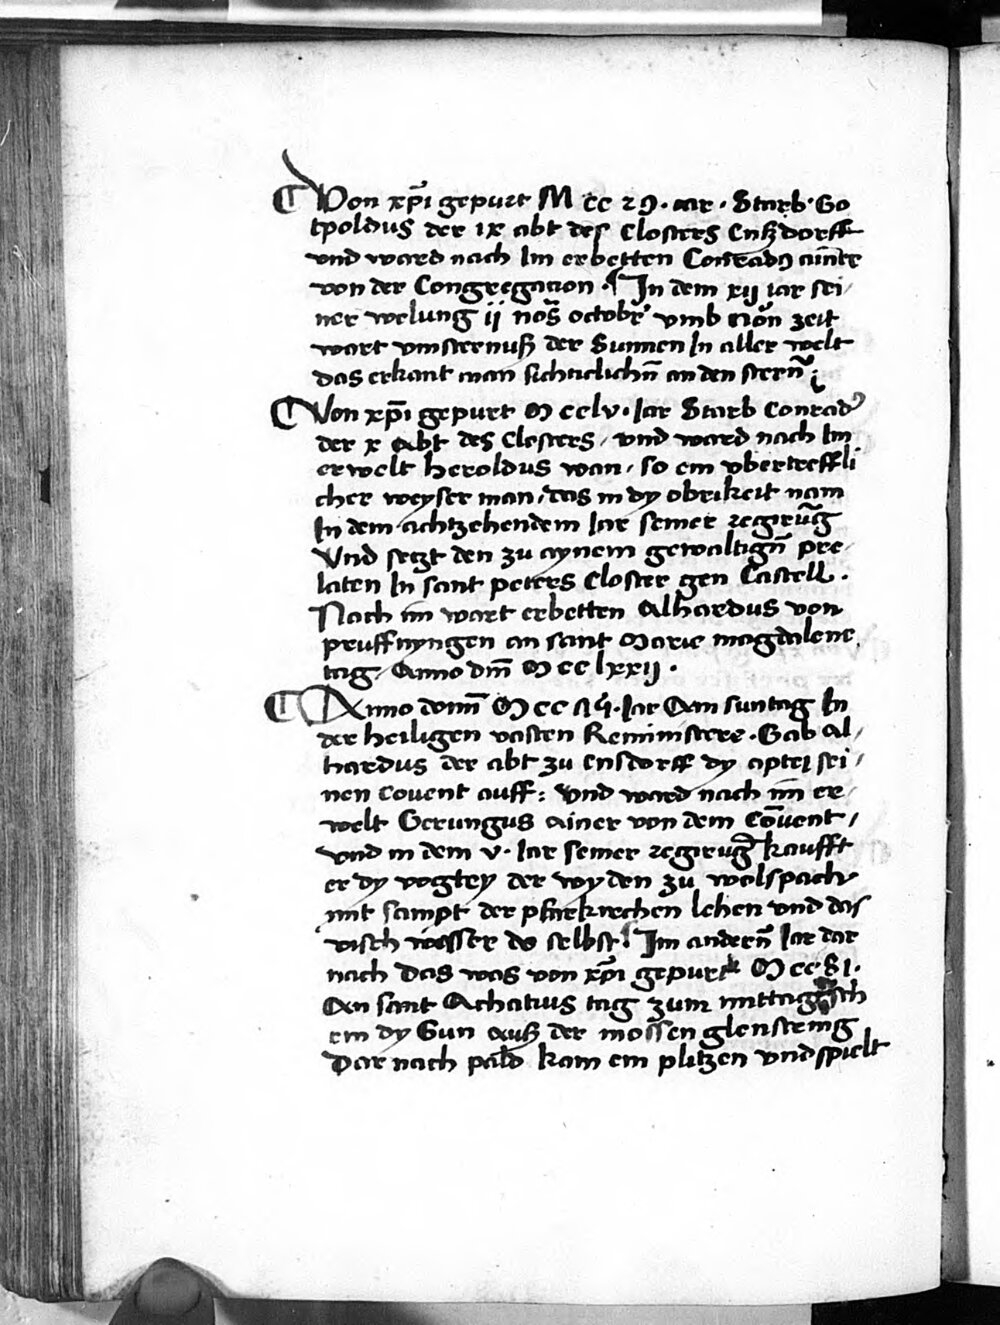 Von xp̄i gepurt M cc 29 . iar . Starb . Go
tpoldus der ix abt des Closters Enßdorff
vnd ward nach Im erbetten Conradꝰ ainer
von der Congregacion . In dem xij iar sei/
ner welung ij nos̄ octobr̄ vmb non̄ zeit
wart vinsternuß der Sunnen In aller welt
das erkant man sichticlichn̄ an den stern̄
Von xp̄i gepurt M cclv . Iar Starb Conradꝰ
der x Abt des Closters / vnd ward nach Im
erwelt heroldus wan / so ein vbertreffli
cher weyser man / das in dy obrikeit nam
In dem achtzehendem Iar seiner regirūg
Vnd setzt den zu aynem gewaltign̄ pre/
laten In sant peters Closter gen Castell .
Nach im wart erbetten Alhardus von
pruffnyngen an sant Marie magdalene
tag / Anno dm̄ M cc lxxij .
Anno domī M cc . Iar Am suntag In
der heiligen vasten Reministere . Gab Al/
hardus der abt zu Ensdorff dy aptei sei/
nen Couent auff : Vnd ward nach im er/
welt Gerungus ainer von dem Cōuent /
vnd in dem v . Iar seiner regiruḡ kaufft
er dy vogtey der wyden zu wolspach
mit sampt der pfarkirchen lehen vnd das
visch wasser do selbst . Im andern̄ Iar dar
nach das was von xp̄i gepurt M cc 81 .
An sant Achatius tag zum mittag sch
ein dy Sun auß der mossen glensteing
Dar nach pald kam ein plitzen vnd spielt